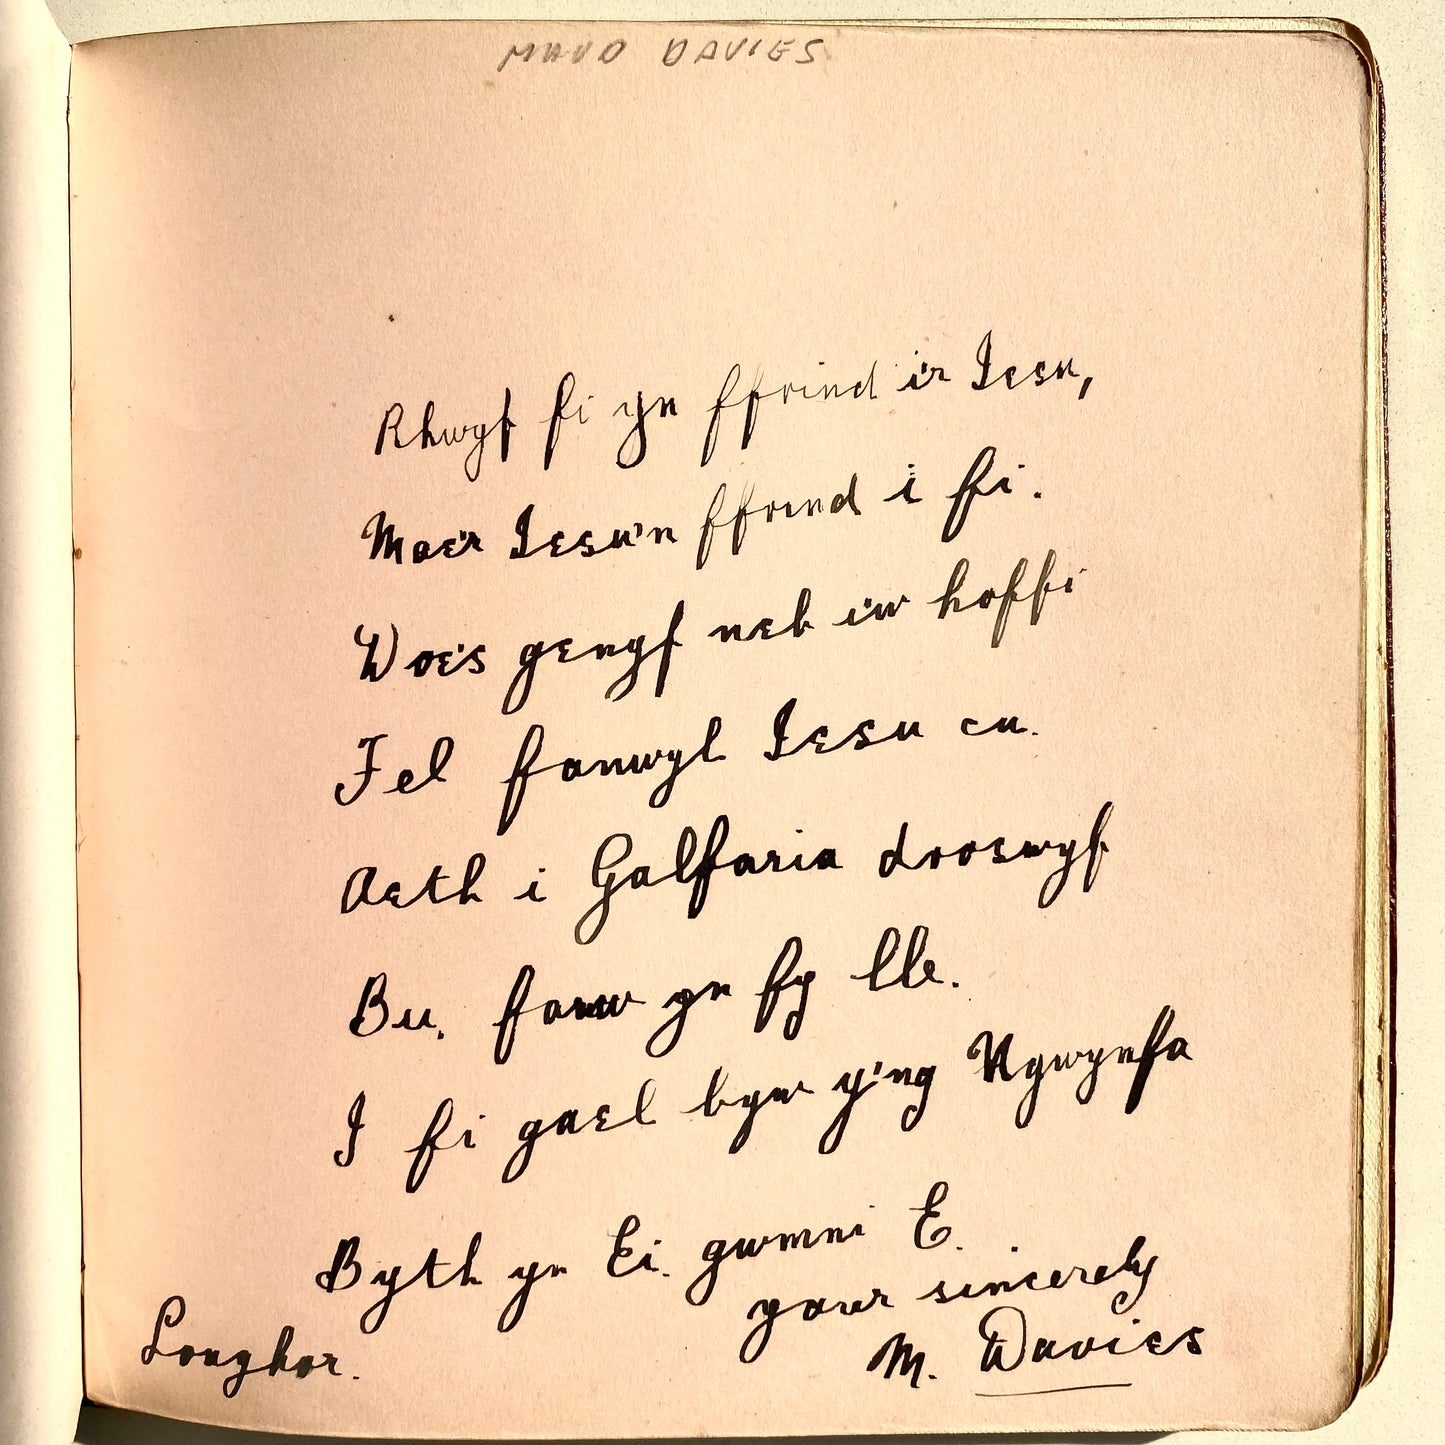 MAUD DAVIES
Rhwyf fi yn ffrind i'r Iesu,
Mae'r Iesu'n ffrind i fi.
Does gengyf neb i'w hoffi
Fel fanwyl Iesu cu.
Aeth i Galfaria drooswyf
Bu. farw yn fy lle.
I fi gael byw y'ng Ngwynfa
Byth yn Ei. gwmni E.
your sincerely
Loughor.
M. Davies